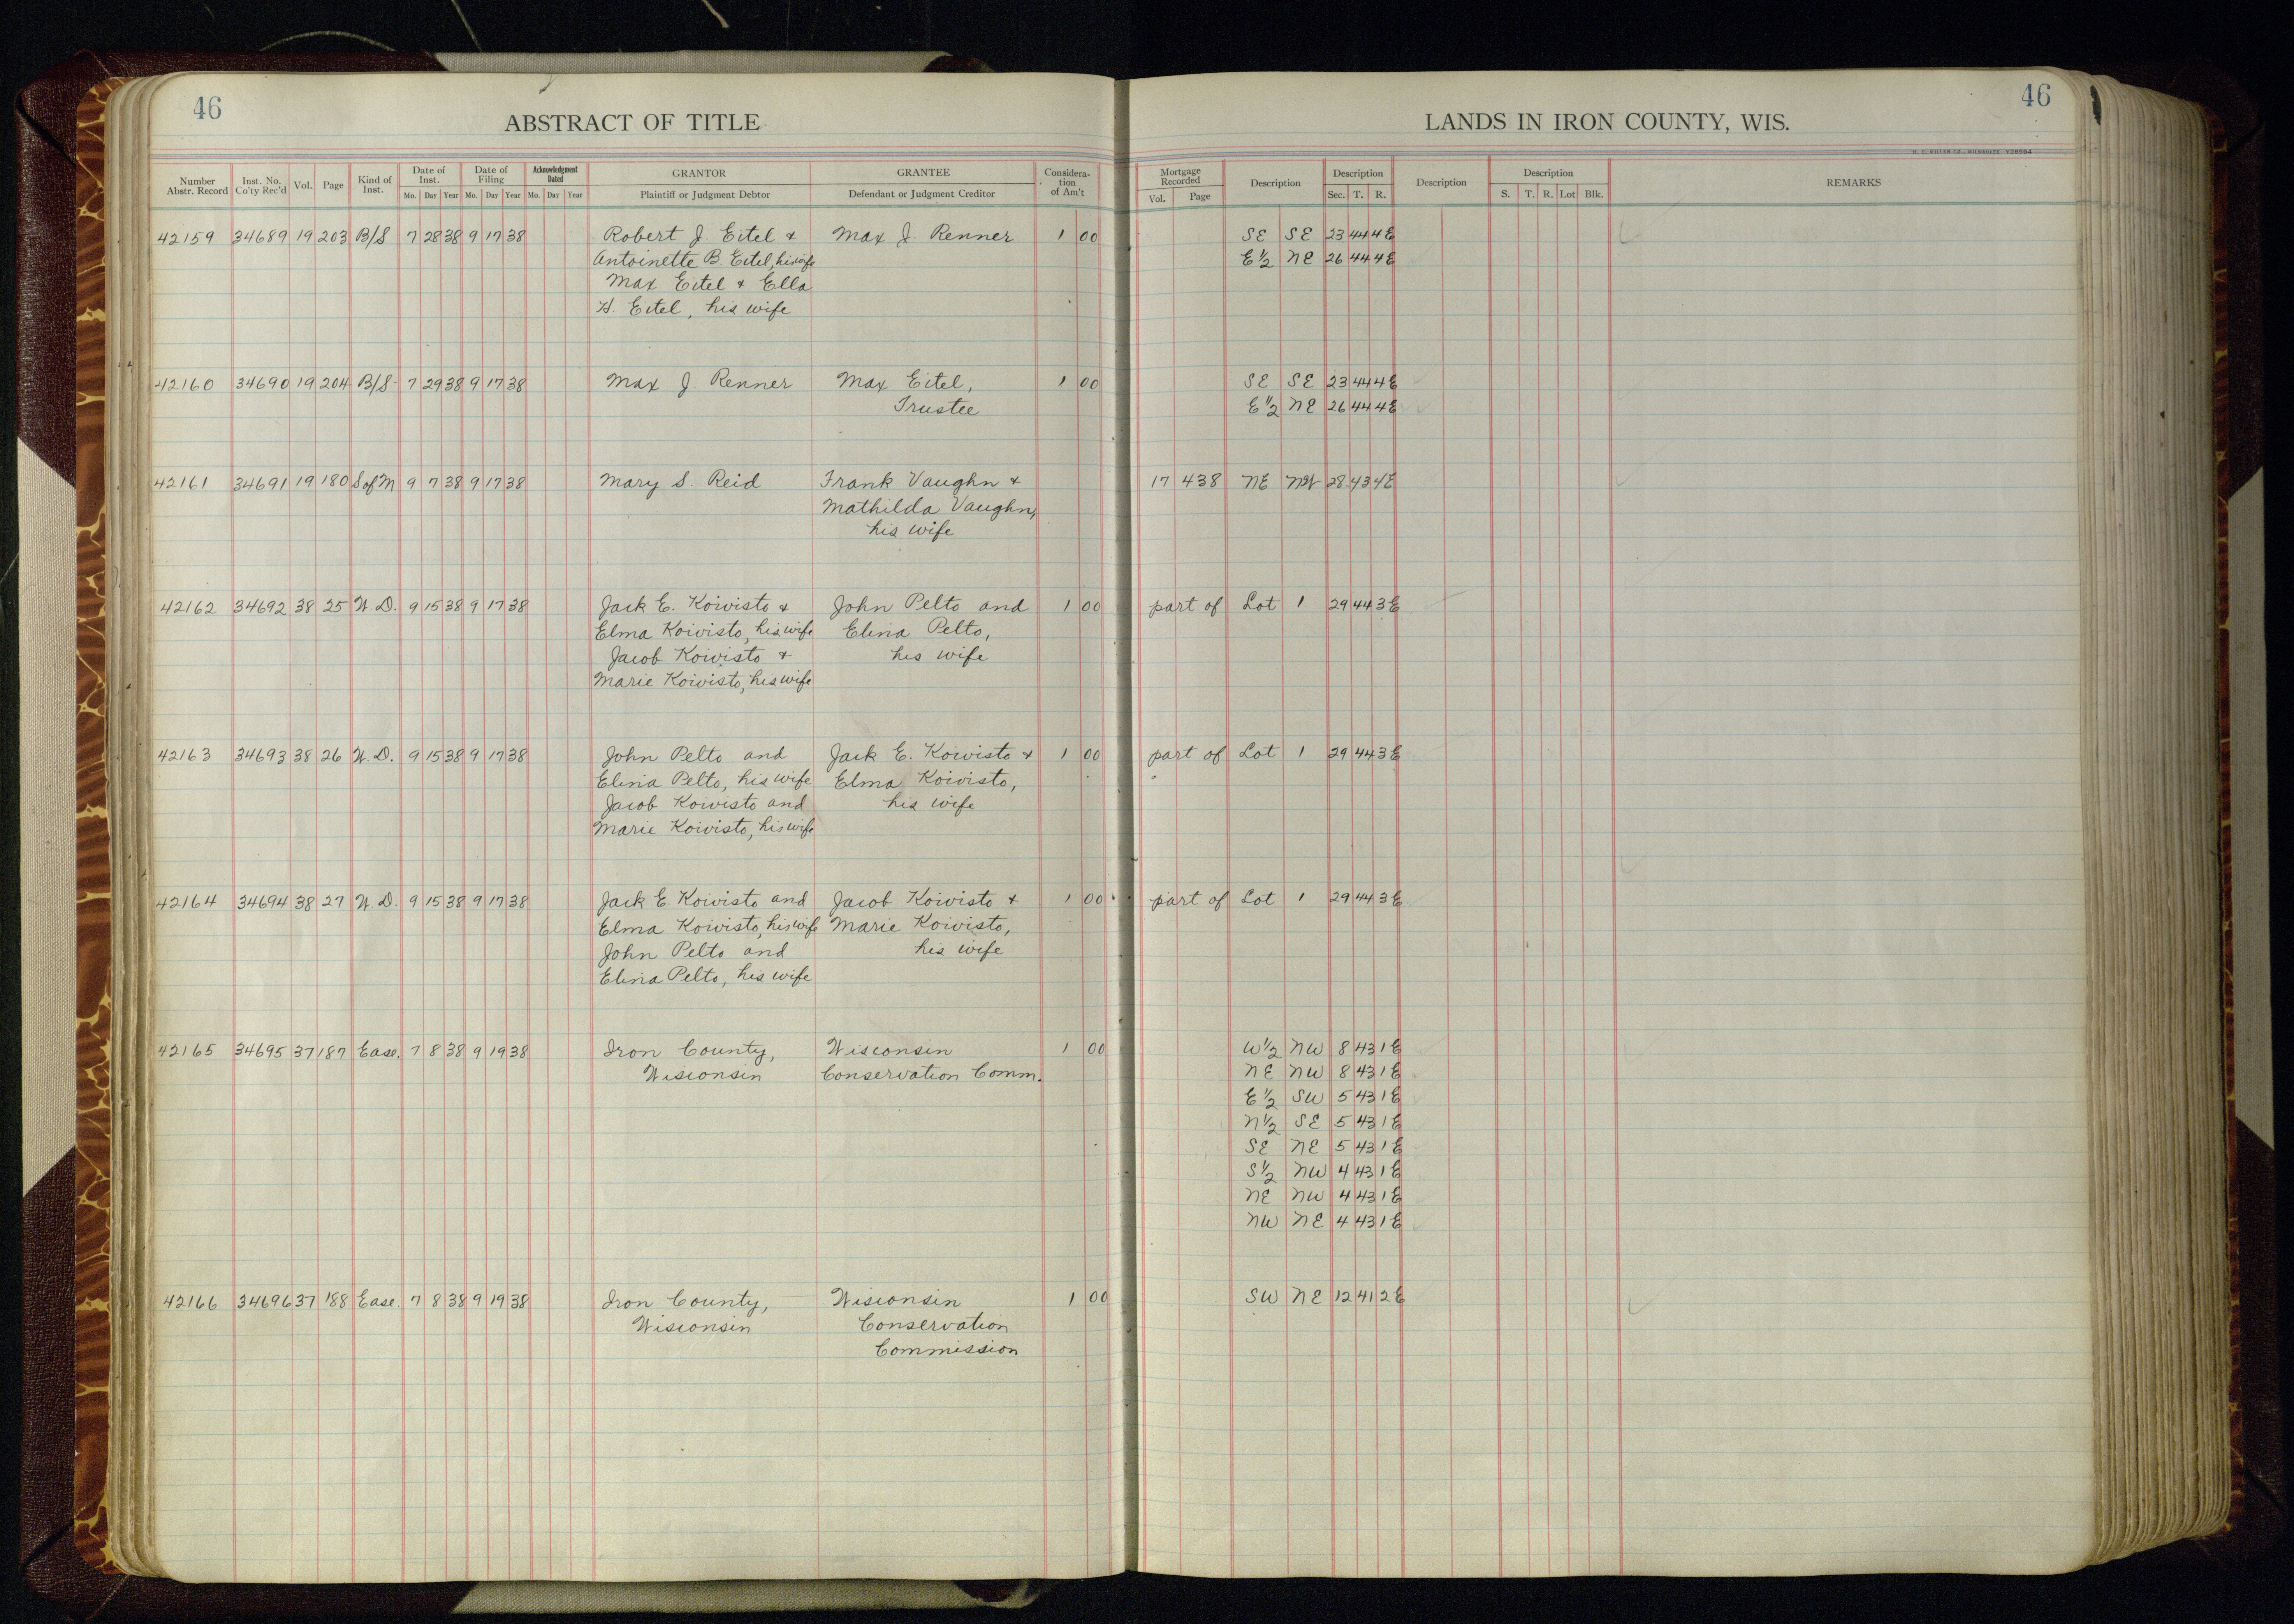 46
ABSTRACT OF TITLE
LANDS IN IRON COUNTY, WIS.
46
H. C. MILLER CO., MILWAUKEE
Number Abstr. Record | Inst. No. Co'ty Rec'd | Vol. | Page | Kind of Inst. | Date of Inst. Mo. Day Year | Date of Filing Mo. Day Year | Acknowledgment Dated Mo. Day Year | GRANTOR Plaintiff or Judgment Debtor | GRANTEE Defendant or Judgment Creditor | Consideration of Am't | Mortgage Recorded Vol. Page | Description | Description Sec. T. R. | Description | Description S. T. R. Lot Blk. | REMARKS
42159 34689 19 203 B/S 7 28 38 9 17 38 Robert J. Eitel & Max J. Renner 1 00 SE SE 23 44 4E
Antoinette B. Eitel, his wife E½ NE 26 44 4E
Max Eitel & Ella
H. Eitel, his wife
42160 34690 19 204 B/S 7 29 38 9 17 38 Max J. Renner Max Eitel, 1 00 SE SE 23 44 4E
Trustee E½ NE 26 44 4E
42161 34691 19 180 S of M 9 7 38 9 17 38 Mary S. Reid Frank Vaughn & 17 438 NE NW 28 43 4E
Mathilda Vaughn,
his wife
42162 34692 38 25 W.D. 9 15 38 9 17 38 Jack E. Koivisto & John Pelto and 1 00 part of Lot 1 29 44 3E
Elma Koivisto, his wife Elina Pelto,
Jacob Koivisto & his wife
Marie Koivisto, his wife
42163 34693 38 26 W.D. 9 15 38 9 17 38 John Pelto and Jack E. Koivisto & 1 00 part of Lot 1 29 44 3E
Elina Pelto, his wife Elma Koivisto,
Jacob Koivisto and his wife
Marie Koivisto, his wife
42164 34694 38 27 W.D. 9 15 38 9 17 38 Jack E. Koivisto and Jacob Koivisto & 1 00 part of Lot 1 29 44 3E
Elma Koivisto, his wife Marie Koivisto,
John Pelto and his wife
Elina Pelto, his wife
42165 34695 37 187 Ease. 7 8 38 9 19 38 Iron County, Wisconsin 1 00 W½ NW 8 43 1E
Wisconsin Conservation Comm. NE NW 8 43 1E
E½ SW 5 43 1E
N½ SE 5 43 1E
SE NE 5 43 1E
S½ NW 4 43 1E
NE NW 4 43 1E
NW NE 4 43 1E
42166 34696 37 188 Ease. 7 8 38 9 19 38 Iron County, Wisconsin 1 00 SW NE 12 41 2E
Wisconsin Conservation
Commission